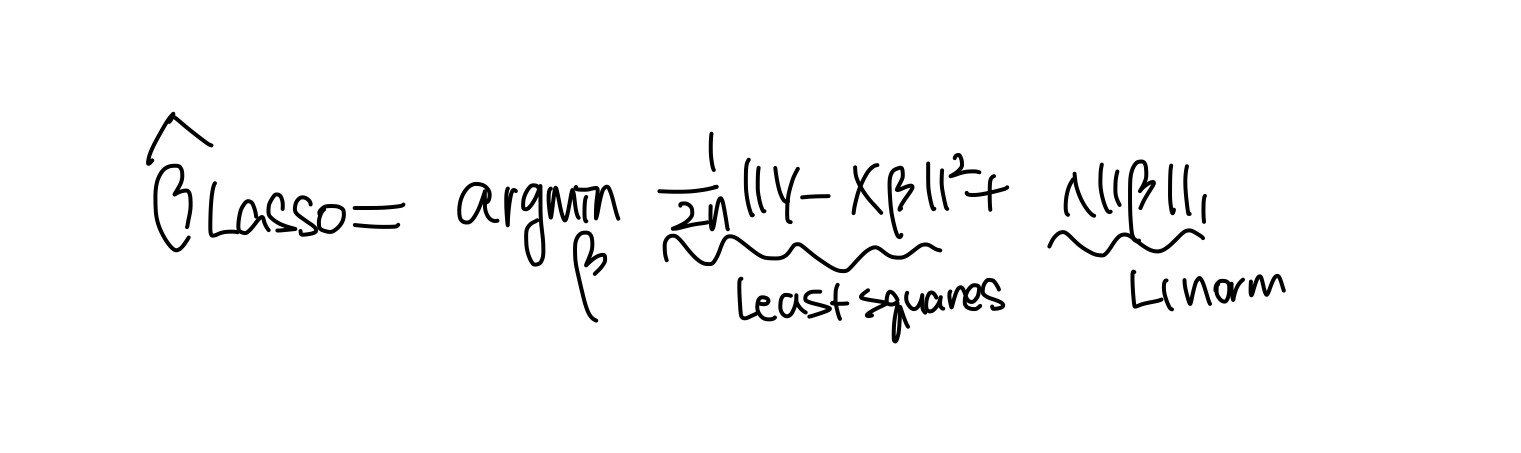 β̂ Lasso = argmin β 1/2n ||Y - Xβ||² + λ||β||₁
Least squares L1 norm